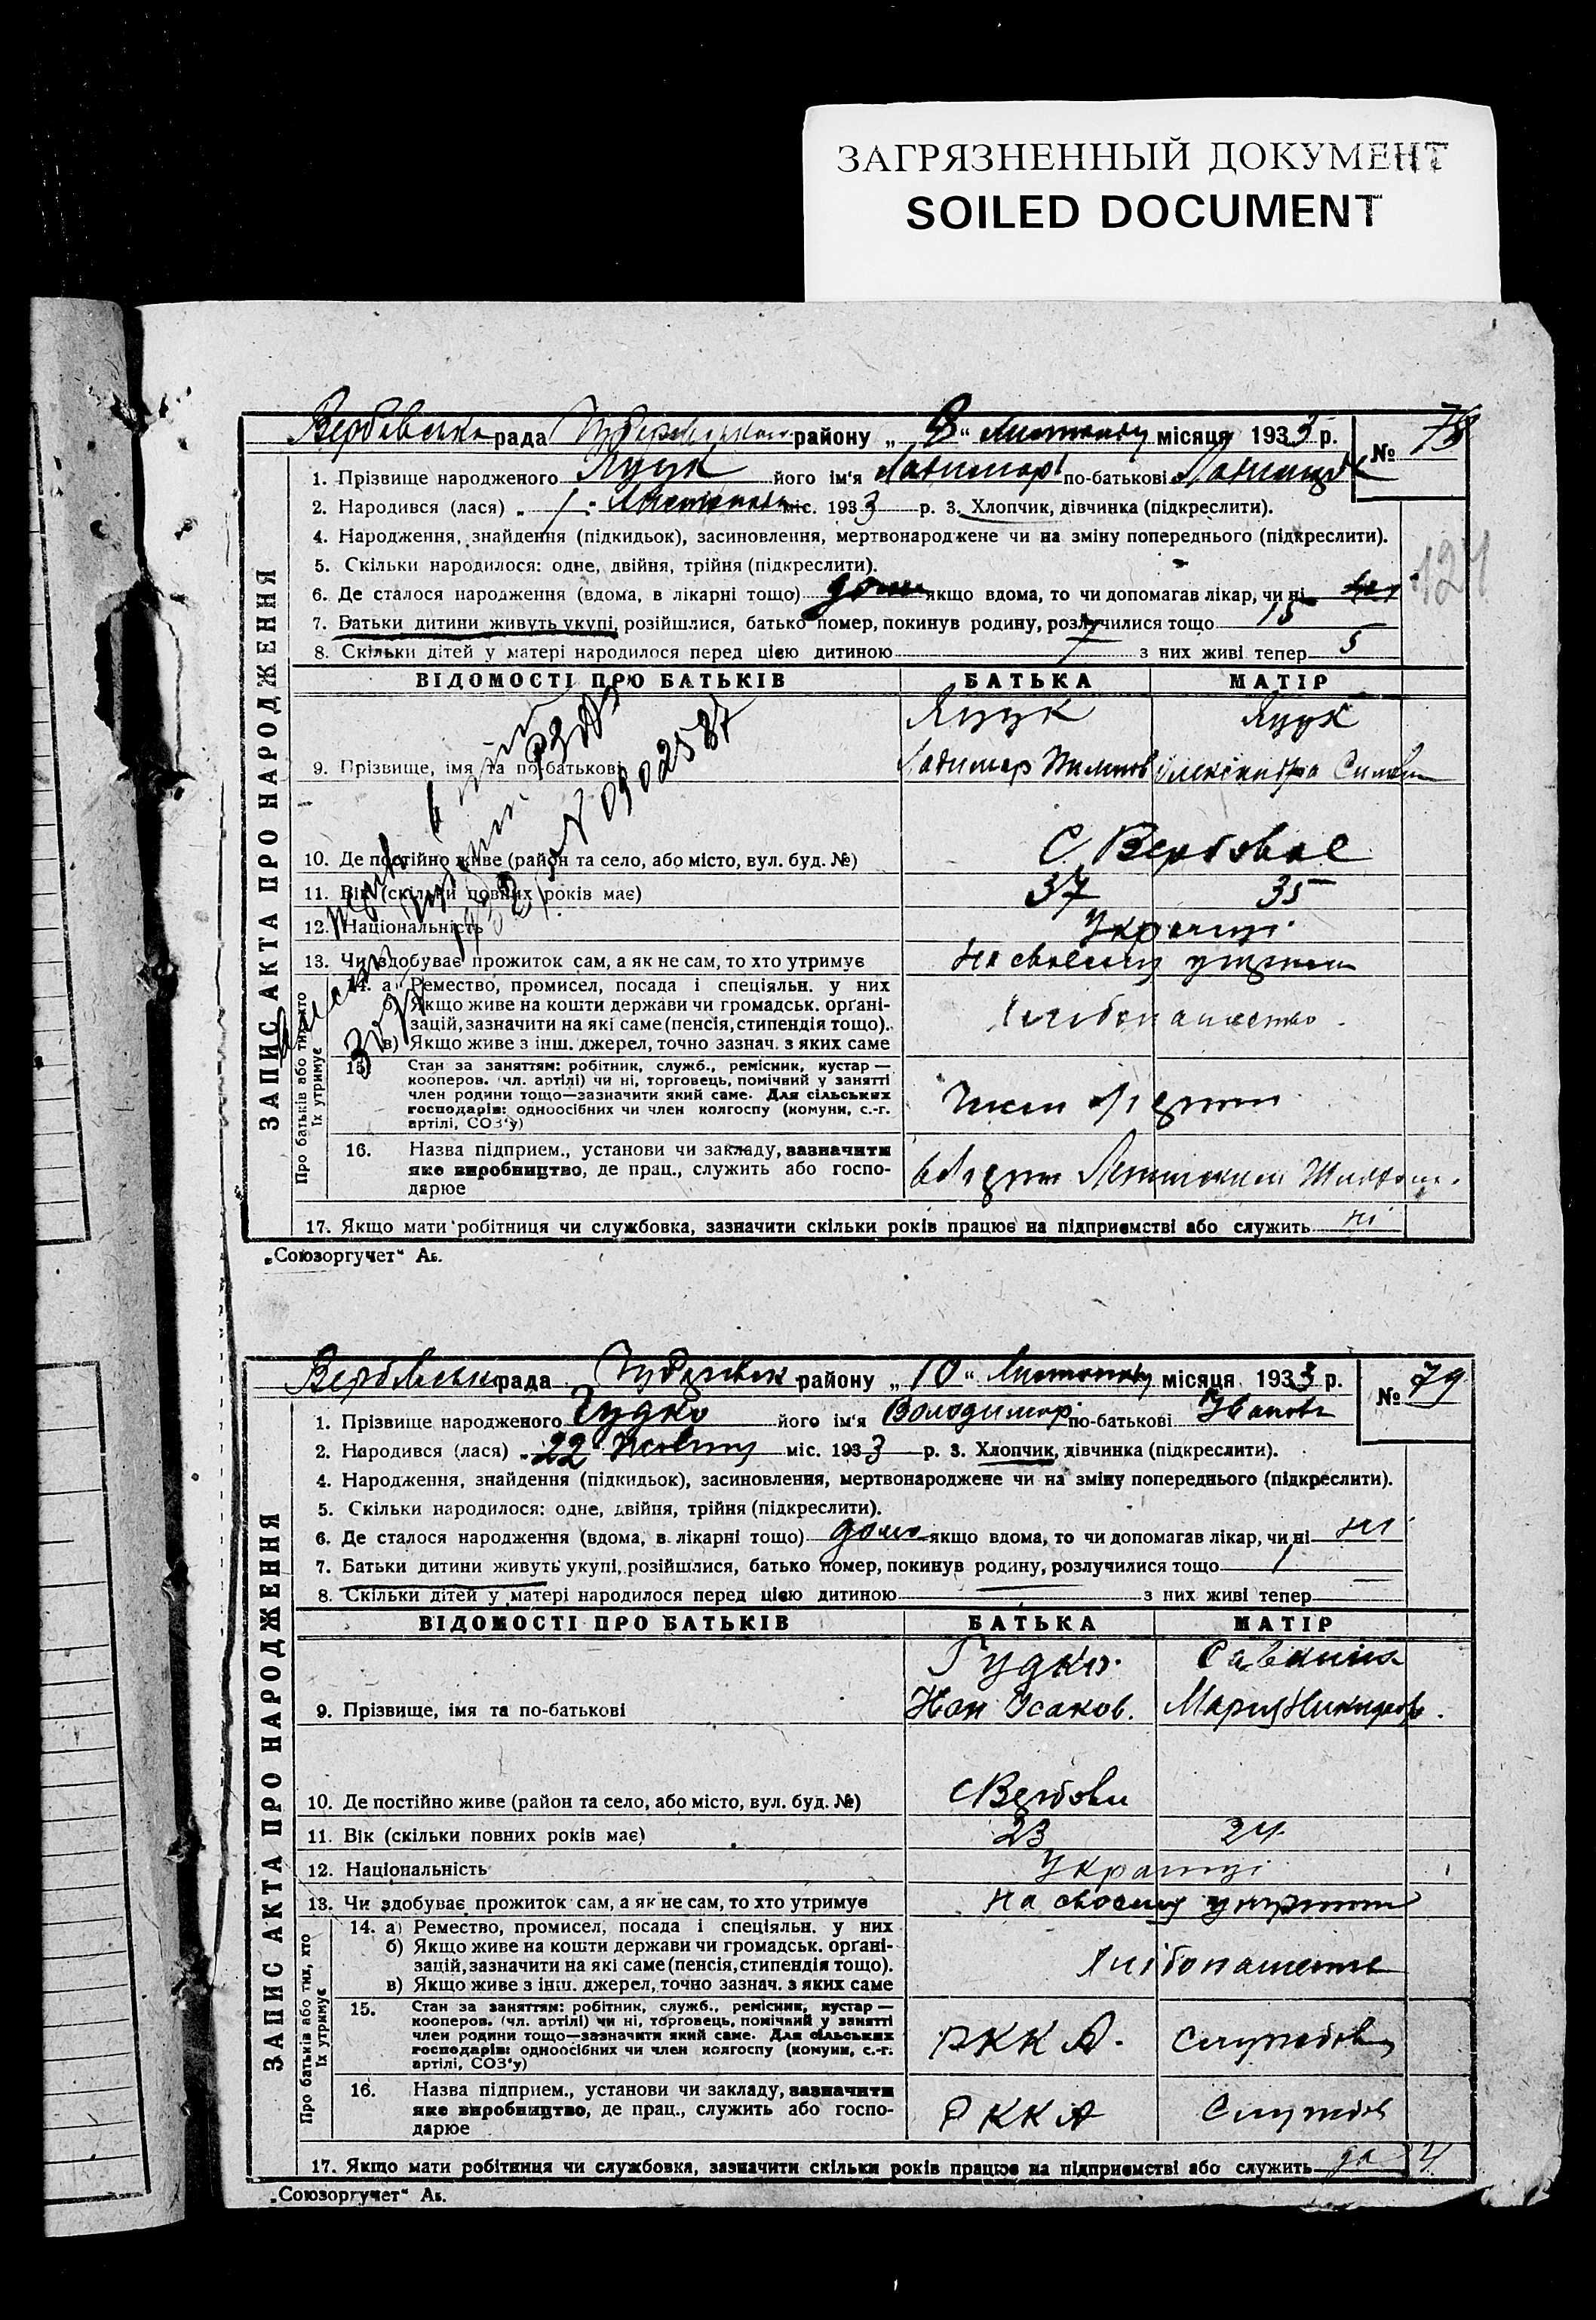 ЗАГРЯЗНЕННЫЙ ДОКУМЕНТ
SOILED DOCUMENT
Вербівська рада району „ 8 “ Листопаду місяця 1933 р.
№ 78
1. Прізвище народженого Яцук його ім'я Ладимир по-батькові
2. Народився (лася) „ 1 “ Листопада міс. 1933 р. 3. Хлопчик, дівчинка (підкреслити).
4. Народження, знайдення (підкидьок), засиновлення, мертвонароджене чи на зміну попереднього (підкреслити).
5. Скільки народилося: одне, двійня, трійня (підкреслити).
124
6. Де сталося народження (вдома, в лікарні тощо) дома якщо вдома, то чи допомагав лікар, чи ні ні
7. Батьки дитини живуть укупі, розійшлися, батько помер, покинув родину, розлучилися тощо 15
8. Скільки дітей у матері народилося перед цією дитиною 7 з них живі тепер 5
ВІДОМОСТІ ПРО БАТЬКІВ БАТЬКА МАТІР
Яцук Яцук
9. Прізвище, імя та по-батькові Ладимир Олександра
10. Де постійно живе (район та село, або місто, вул. буд. №) С Вербовое
11. Вік (скільки повних років має) 37 35
12. Національність Українці
13. Чи здобуває прожиток сам, а як не сам, то хто утримує на своєму
14. а) Ремество, промисел, посада і спеціяльн. у них
б) Якщо живе на кошти держави чи громадськ. органі-
зацій, зазначити на які саме (пенсія, стипендія тощо).
в) Якщо живе з інш. джерел, точно зазнач. з яких саме
Хлібопашество
15. Стан за заняттям: робітник, служб., ремісник, кустар —
кооперов. (чл. артілі) чи ні, торговець, помічний у занятті
член родини тощо—зазначити який саме. Для сільських
господарів: одноосібних чи член колгоспу (комуни, с.-г.
артілі, СОЗ'у)
16. Назва підприєм., установи чи закладу, зазначити
яке виробництво, де прац., служить або госпо-
дарює
17. Якщо мати робітниця чи службовка, зазначити скільки років працює на підприємстві або служить ні
ЗАПИС АКТА ПРО НАРОДЖЕННЯ
Про батьків або тих, хто
їх утримує
„Союзоргучет“ Аб.
Вербівська рада району „ 10 “ Листопаду місяця 1933 р.
№ 79
1. Прізвище народженого Гудко його ім'я Володимир по-батькові Іванов
2. Народився (лася) „ 22 “ Жовтня міс. 1933 р. 3. Хлопчик, дівчинка (підкреслити).
4. Народження, знайдення (підкидьок), засиновлення, мертвонароджене чи на зміну попереднього (підкреслити).
5. Скільки народилося: одне, двійня, трійня (підкреслити).
6. Де сталося народження (вдома, в лікарні тощо) дома якщо вдома, то чи допомагав лікар, чи ні ні
7. Батьки дитини живуть укупі, розійшлися, батько помер, покинув родину, розлучилися тощо 1
8. Скільки дітей у матері народилося перед цією дитиною — з них живі тепер —
ВІДОМОСТІ ПРО БАТЬКІВ БАТЬКА МАТІР
Гудко
9. Прізвище, імя та по-батькові Исаков. Мария
10. Де постійно живе (район та село, або місто, вул. буд. №) с Вербови
11. Вік (скільки повних років має) 23 24
12. Національність Українці
13. Чи здобуває прожиток сам, а як не сам, то хто утримує на своєму
14. а) Ремество, промисел, посада і спеціяльн. у них
б) Якщо живе на кошти держави чи громадськ. органі-
зацій, зазначити на які саме (пенсія, стипендія тощо).
в) Якщо живе з інш. джерел, точно зазнач. з яких саме
Хлібопашенство
15. Стан за заняттям: робітник, служб., ремісник, кустар —
кооперов. (чл. артілі) чи ні, торговець, помічний у занятті
член родини тощо—зазначити який саме. Для сільських
господарів: одноосібних чи член колгоспу (комуни, с.-г.
артілі, СОЗ'у)
РККА. службов
16. Назва підприєм., установи чи закладу, зазначити
яке виробництво, де прац., служить або госпо-
дарює
РККА
17. Якщо мати робітниця чи службовка, зазначити скільки років працює на підприємстві або служить да
ЗАПИС АКТА ПРО НАРОДЖЕННЯ
Про батьків або тих, хто
їх утримує
„Союзоргучет“ Аб.